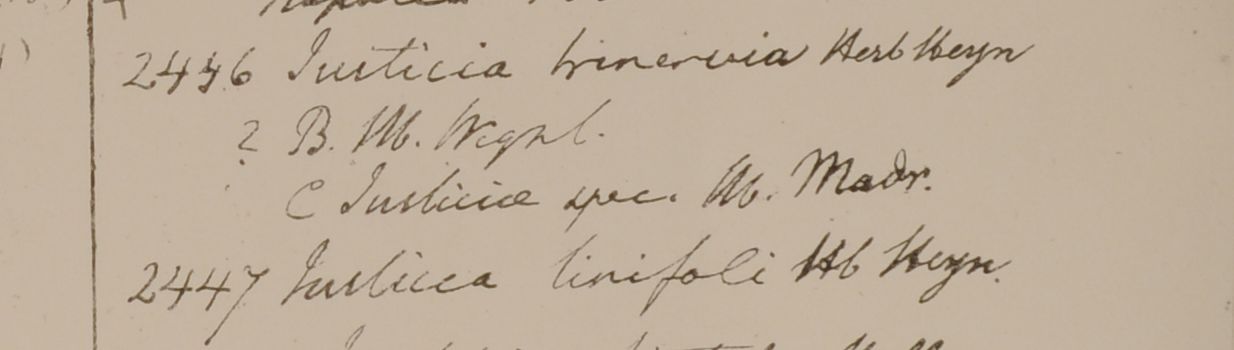 2446 Justicia trinervia Herb Heyn
? B. Hb. Wight.
C Justicia spec. Hb. Madr.
2447 Justicia linifoli Hb Heyn.